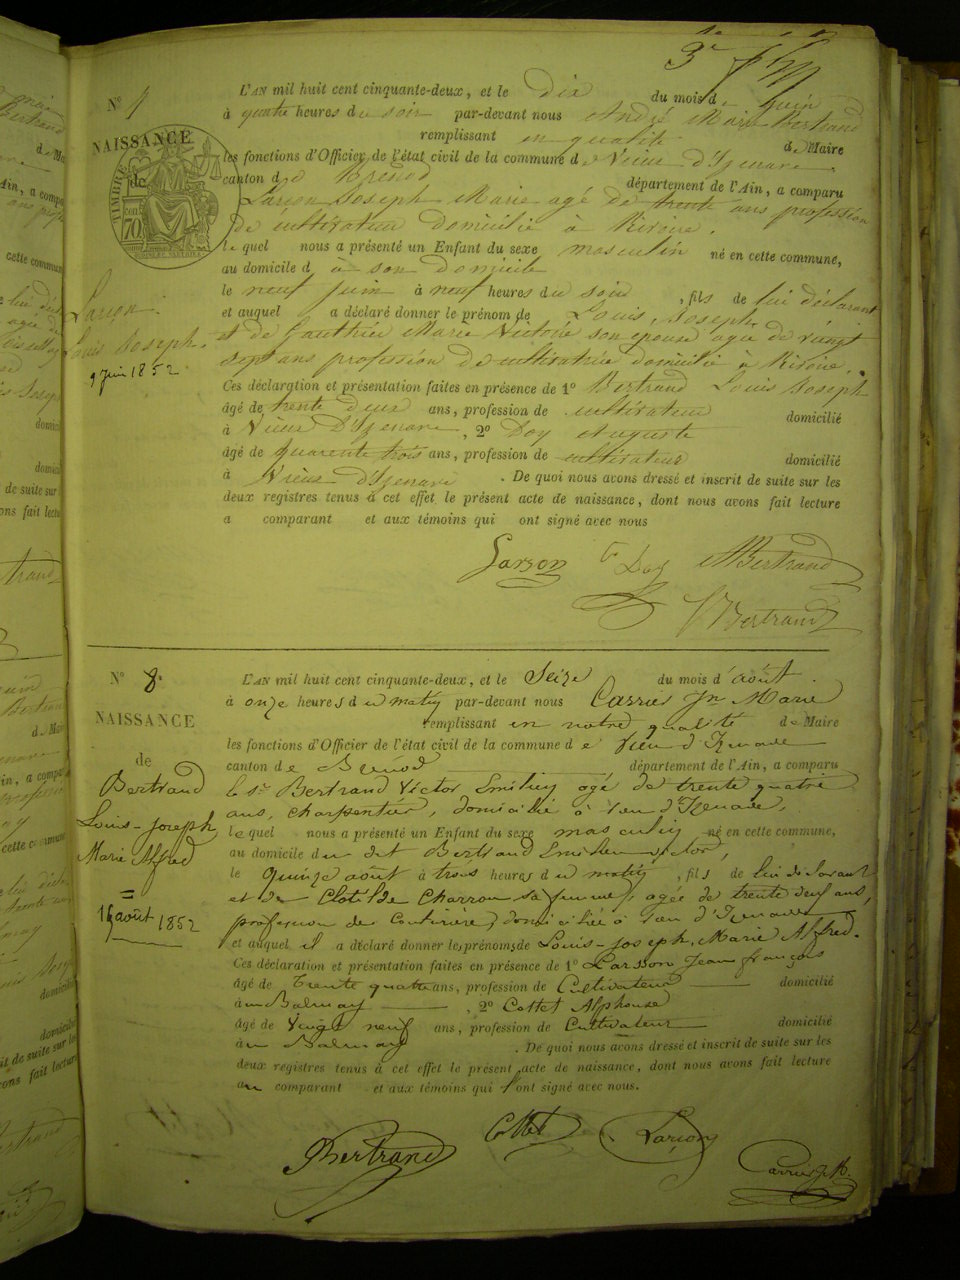 L'AN mil huit cent cinquante-deux, et le dix du mois de juin
à quatre heures du soir par-devant nous André Marie Bertrand
remplissant en qualité de Maire
les fonctions d'Officier de l'état civil de la commune de Vieux d'Izenave
canton de Brénod département de l'Ain, a comparu
Larson Joseph Marie agé de trente ans profession
de cultivateur domicilié à
lequel nous a présenté un Enfant du sexe masculin né en cette commune,
au domicile d à son domicile
le neuf juin à neuf heures du soir, fils de lui déclarant
et auquel a déclaré donner le prénom de Louis, Joseph
et de Gauthier Marie Victoire son épouse agée de vingt
sept ans profession de domicilié à
Ces déclaration et présentation faites en présence de 1° Bertrand Louis Joseph
âgé de trente deux ans, profession de cultivateur domicilié
à Vieux D'Izenave, 2° Doy Auguste
âgé de quarente trois ans, profession de cultivateur domicilié
à Vieux d'Izenave. De quoi nous avons dressé et inscrit de suite sur les
deux registres tenus à cet effet le présent acte de naissance, dont nous avons fait lecture
a comparant et aux témoins qui ont signé avec nous
Larson Doy Bertrand
Bertrand
NAISSANCE
de
TIMBRE
70
Larson
Louis Joseph.
9 Juin 1852
N° 8
NAISSANCE
de
Bertrand
Louis-Joseph
Marie Alfred
15 août 1852
L'AN mil huit cent cinquante-deux, et le Seize du mois d'août
à onze heures du matin par-devant nous Carrier Jn Marie
remplissant en notre qualité de Maire
les fonctions d'Officier de l'état civil de la commune de Vieu d'Izenave
canton de Brénod département de l'Ain, a comparu
le sr Bertrand Victor Emilien agé de trente quatre
ans, charpentier, domicilié à Vieu d'Izenave,
lequel nous a présenté un Enfant du sexe masculin né en cette commune,
au domicile du dit Bertrand Emilien victor,
le quinze aout à trois heures du matin, fils de lui déclarant
et de Clotilde Charron sa femme, agée de trente deux ans,
profession de Couturière, domiciliée à Vieu d'Izenave
et auquel il a déclaré donner les prénoms de Louis-Joseph, Marie Alfred.
Ces déclaration et présentation faites en présence de 1° Larsson Jean françois
âgé de Trente quatre ans, profession de Cultivateur domicilié
à Balmay, 2° Cottet Alphonse
âgé de Vingt neuf ans, profession de Cultivateur domicilié
à Balmay. De quoi nous avons dressé et inscrit de suite sur les
deux registres tenus à cet effet le présent acte de naissance, dont nous avons fait lecture
au comparant et aux témoins qui l'ont signé avec nous.
Bertrand Cottet Larson Carrier J. M.